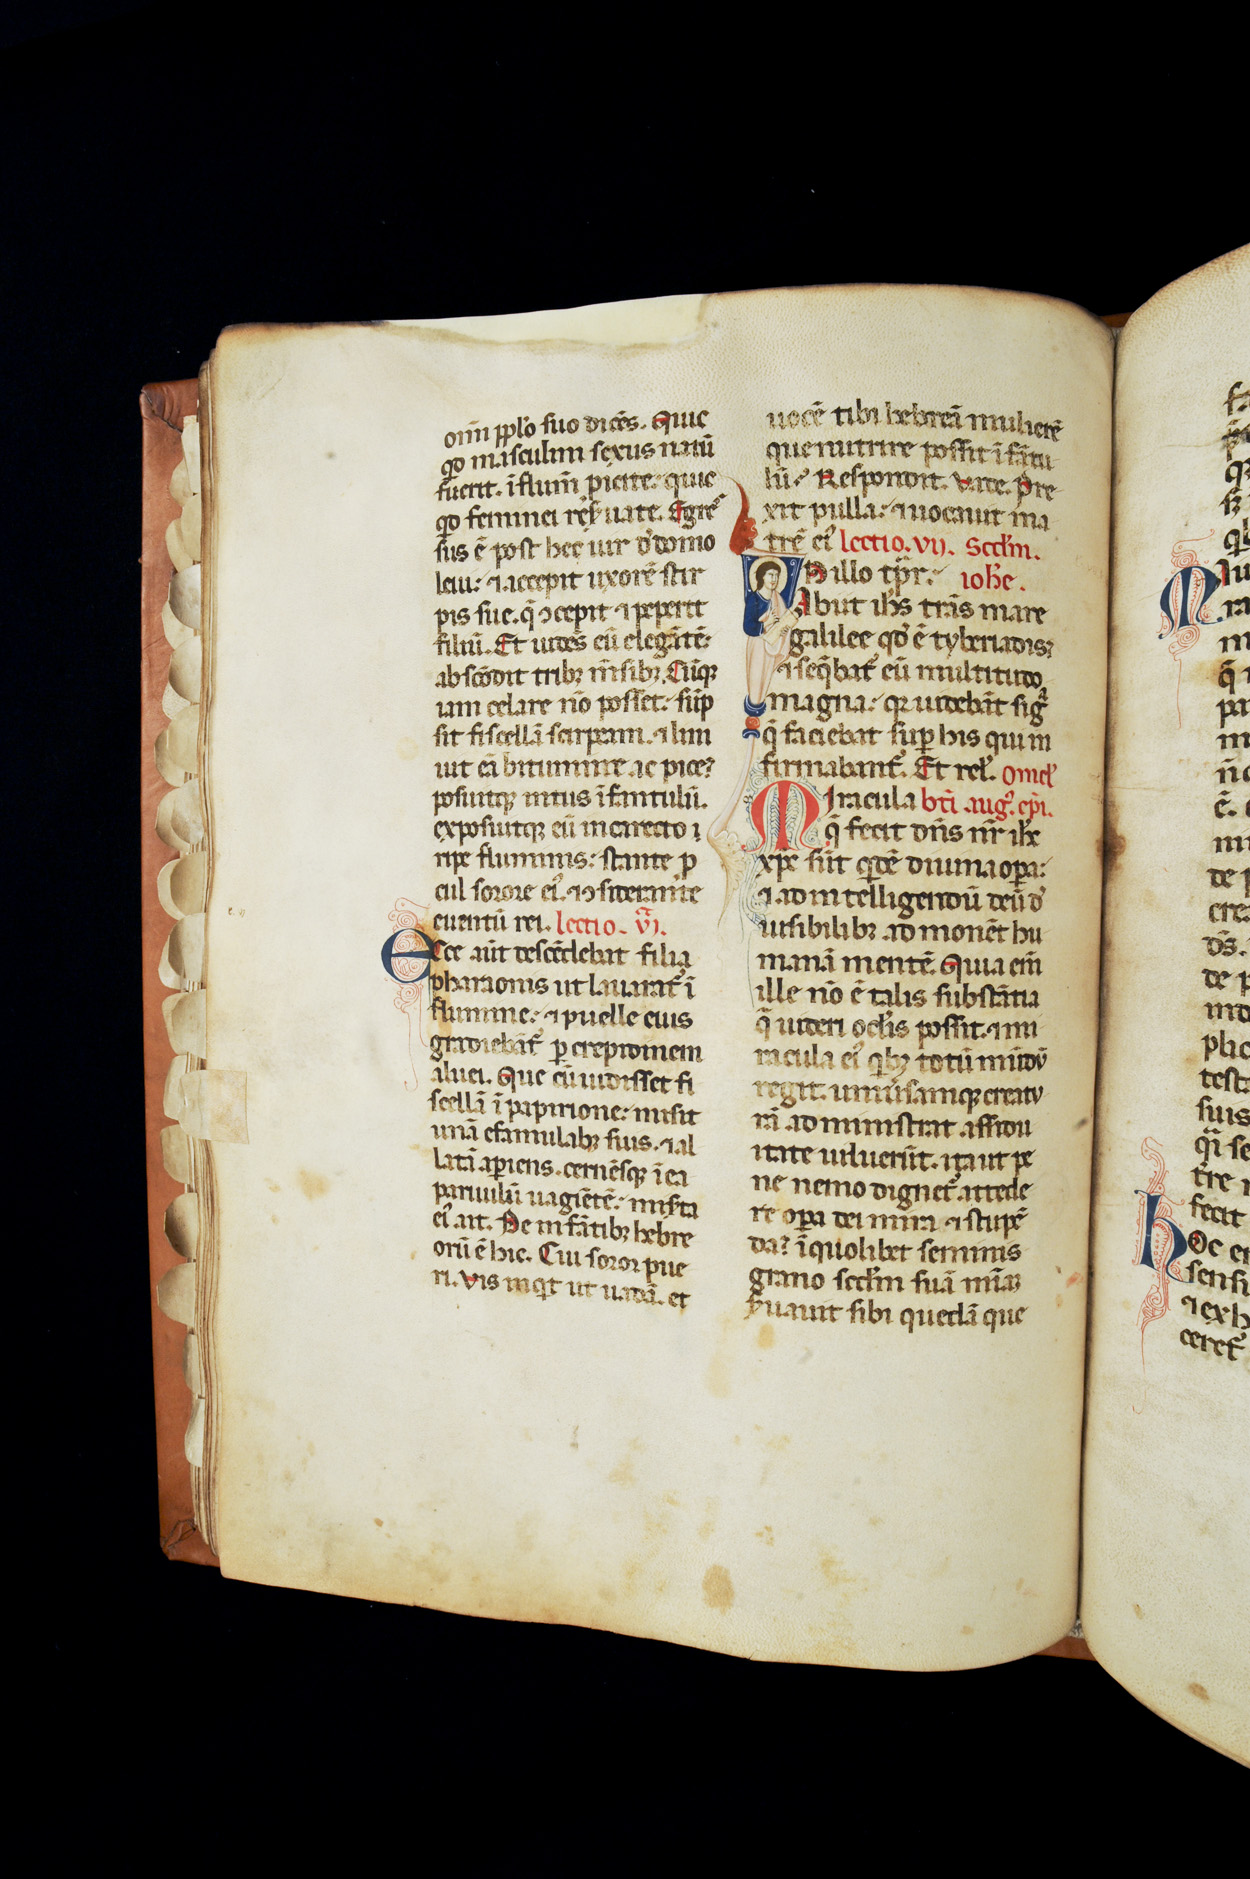 om̄i pp̄lo suo dicēs. Quic
qͥd masculini sexus natū
fuerit. ī flum̄ pıcite: quic
qͥd feminei reẜuate. Egreſ
sus ē post hec uir d̓ domo
leui: ⁊ accepit uxorē stir
pis sue. q̄ ↄcepit ⁊ peperit
filiū. Et uidēs eū elegātē:
abscōdit tribꝫ mēsibꝫ. Cūqꝫ
iam celare nō posset: sūp
sit fiscellā scirpeam. ⁊ lini
uit eā bitumine ac pice:
posuitqꝫ intus īfantulū.
exposuitqꝫ eū in carecto ı
ripe fluminis: stante ꝓ
cul sorore ei᷒. ⁊ ↄsiderante
euentū rei. lectio. vı.
Ecce aūt descēdebat filia
pharaonis ut lauarat᷑ ī
flumine: ⁊ puelle eius
gradiebāt᷑ ꝑ crepidinem
aluei. Que cū uidisset fi
scellā ī papirione: misit
unā e famulabꝫ suis. ⁊ al
latā aperiens. cernēsqꝫ ī ea
paruulū uagiētē: miẜta
ei᷒ ait. De infātibꝫ hebre
orū ē hic. Cui soror pue
ri. Vis inqͥt ut uadā. et
uocē tibi hebreā mulierē
que nutrire possit īfātu
lū? Respondit. Vade. Pre
xit puella: ⁊ uocauit ma
trē ei᷒ lectio. vıı. Scđm.
In illo tp̄r. ioħe.
Abiit iħs trās mare
galilee qđ ē tyberiadis:
⁊ seq̄bat᷑ eū multitudo
magna: qꝛ uidebāt sigͣ
q̄ faciebat suꝑ his qui in
firmabant᷑. Et rel̓. Omel̓
Miracula bt̄i aug᷒. ep̄i.
q̄ fecit dn̄s nr̄ iħc
xp̄c sūt qͥdē diuina oꝑa:
⁊ ad intelligendū deū d̓
uisibilibꝫ admonēt hu
manā mentē. Quia em̄
ille nō ē talis substātia
q̄ uideri ocl̓is possit. ⁊ mi
racula ei᷒ qͥbꝫ totū mūdū
regit. uniūsamqꝫ creatu
rā administrat assidu
itate uiluerūt. ita ut pe
ne nemo dignet᷑ attede
re oꝑa dei mira ⁊ stupē
da: ī quolibet seminis
grano scđm suā mīam
ẜuauit sibi quedā que